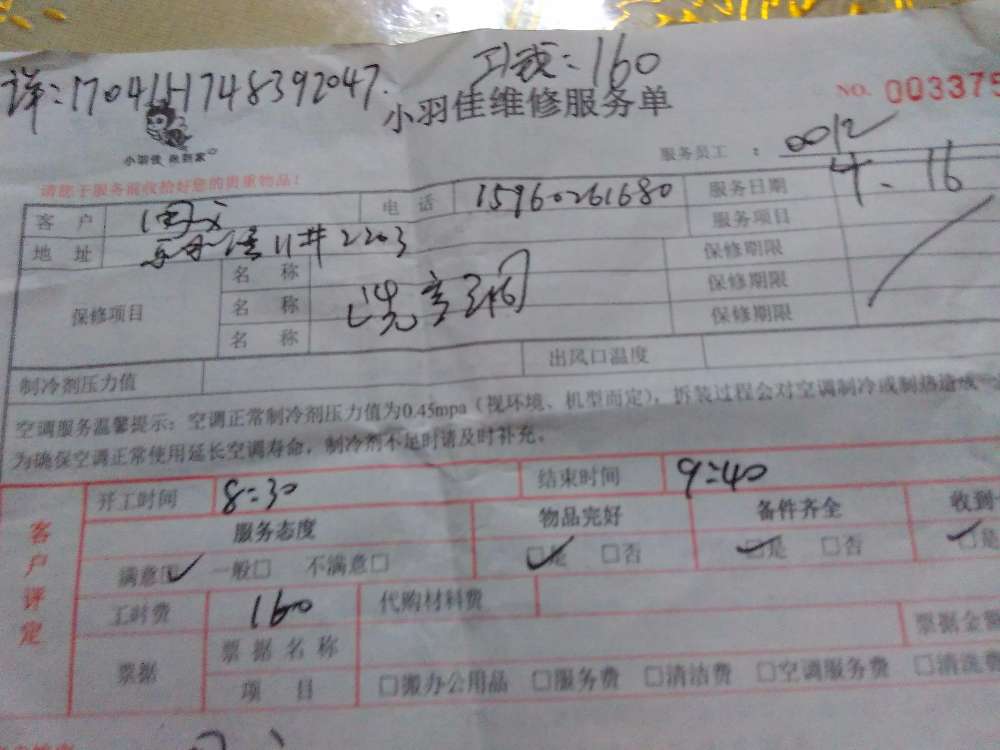 详:170411748392047. 工钱:160
小羽佳维修服务单 NO. 003375
小羽佳 做到家
服务员工 : 0012
请您于服务前收拾好您的贵重物品!
客 户 电 话 15960261680 服务日期 4.16
地 址 11井2203 服务项目
保修项目 名 称 洗空调 保修期限
名 称 保修期限
名 称 保修期限
制冷剂压力值 出风口温度
空调服务温馨提示:空调正常制冷剂压力值为0.45mpa(视环境、机型而定),拆装过程会对空调制冷或制热造成一
为确保空调正常使用延长空调寿命,制冷剂不足时请及时补充。
客户评定
开工时间 8:30 结束时间 9:40
服务态度 物品完好 备件齐全 收到
满意□ 一般□ 不满意□ □是 □否 □是 □否 □是
工时费 160 代购材料费
票据 票据名称 票据金额
项 目 □搬办公用品 □服务费 □清洁费 □空调服务费 □清洗费